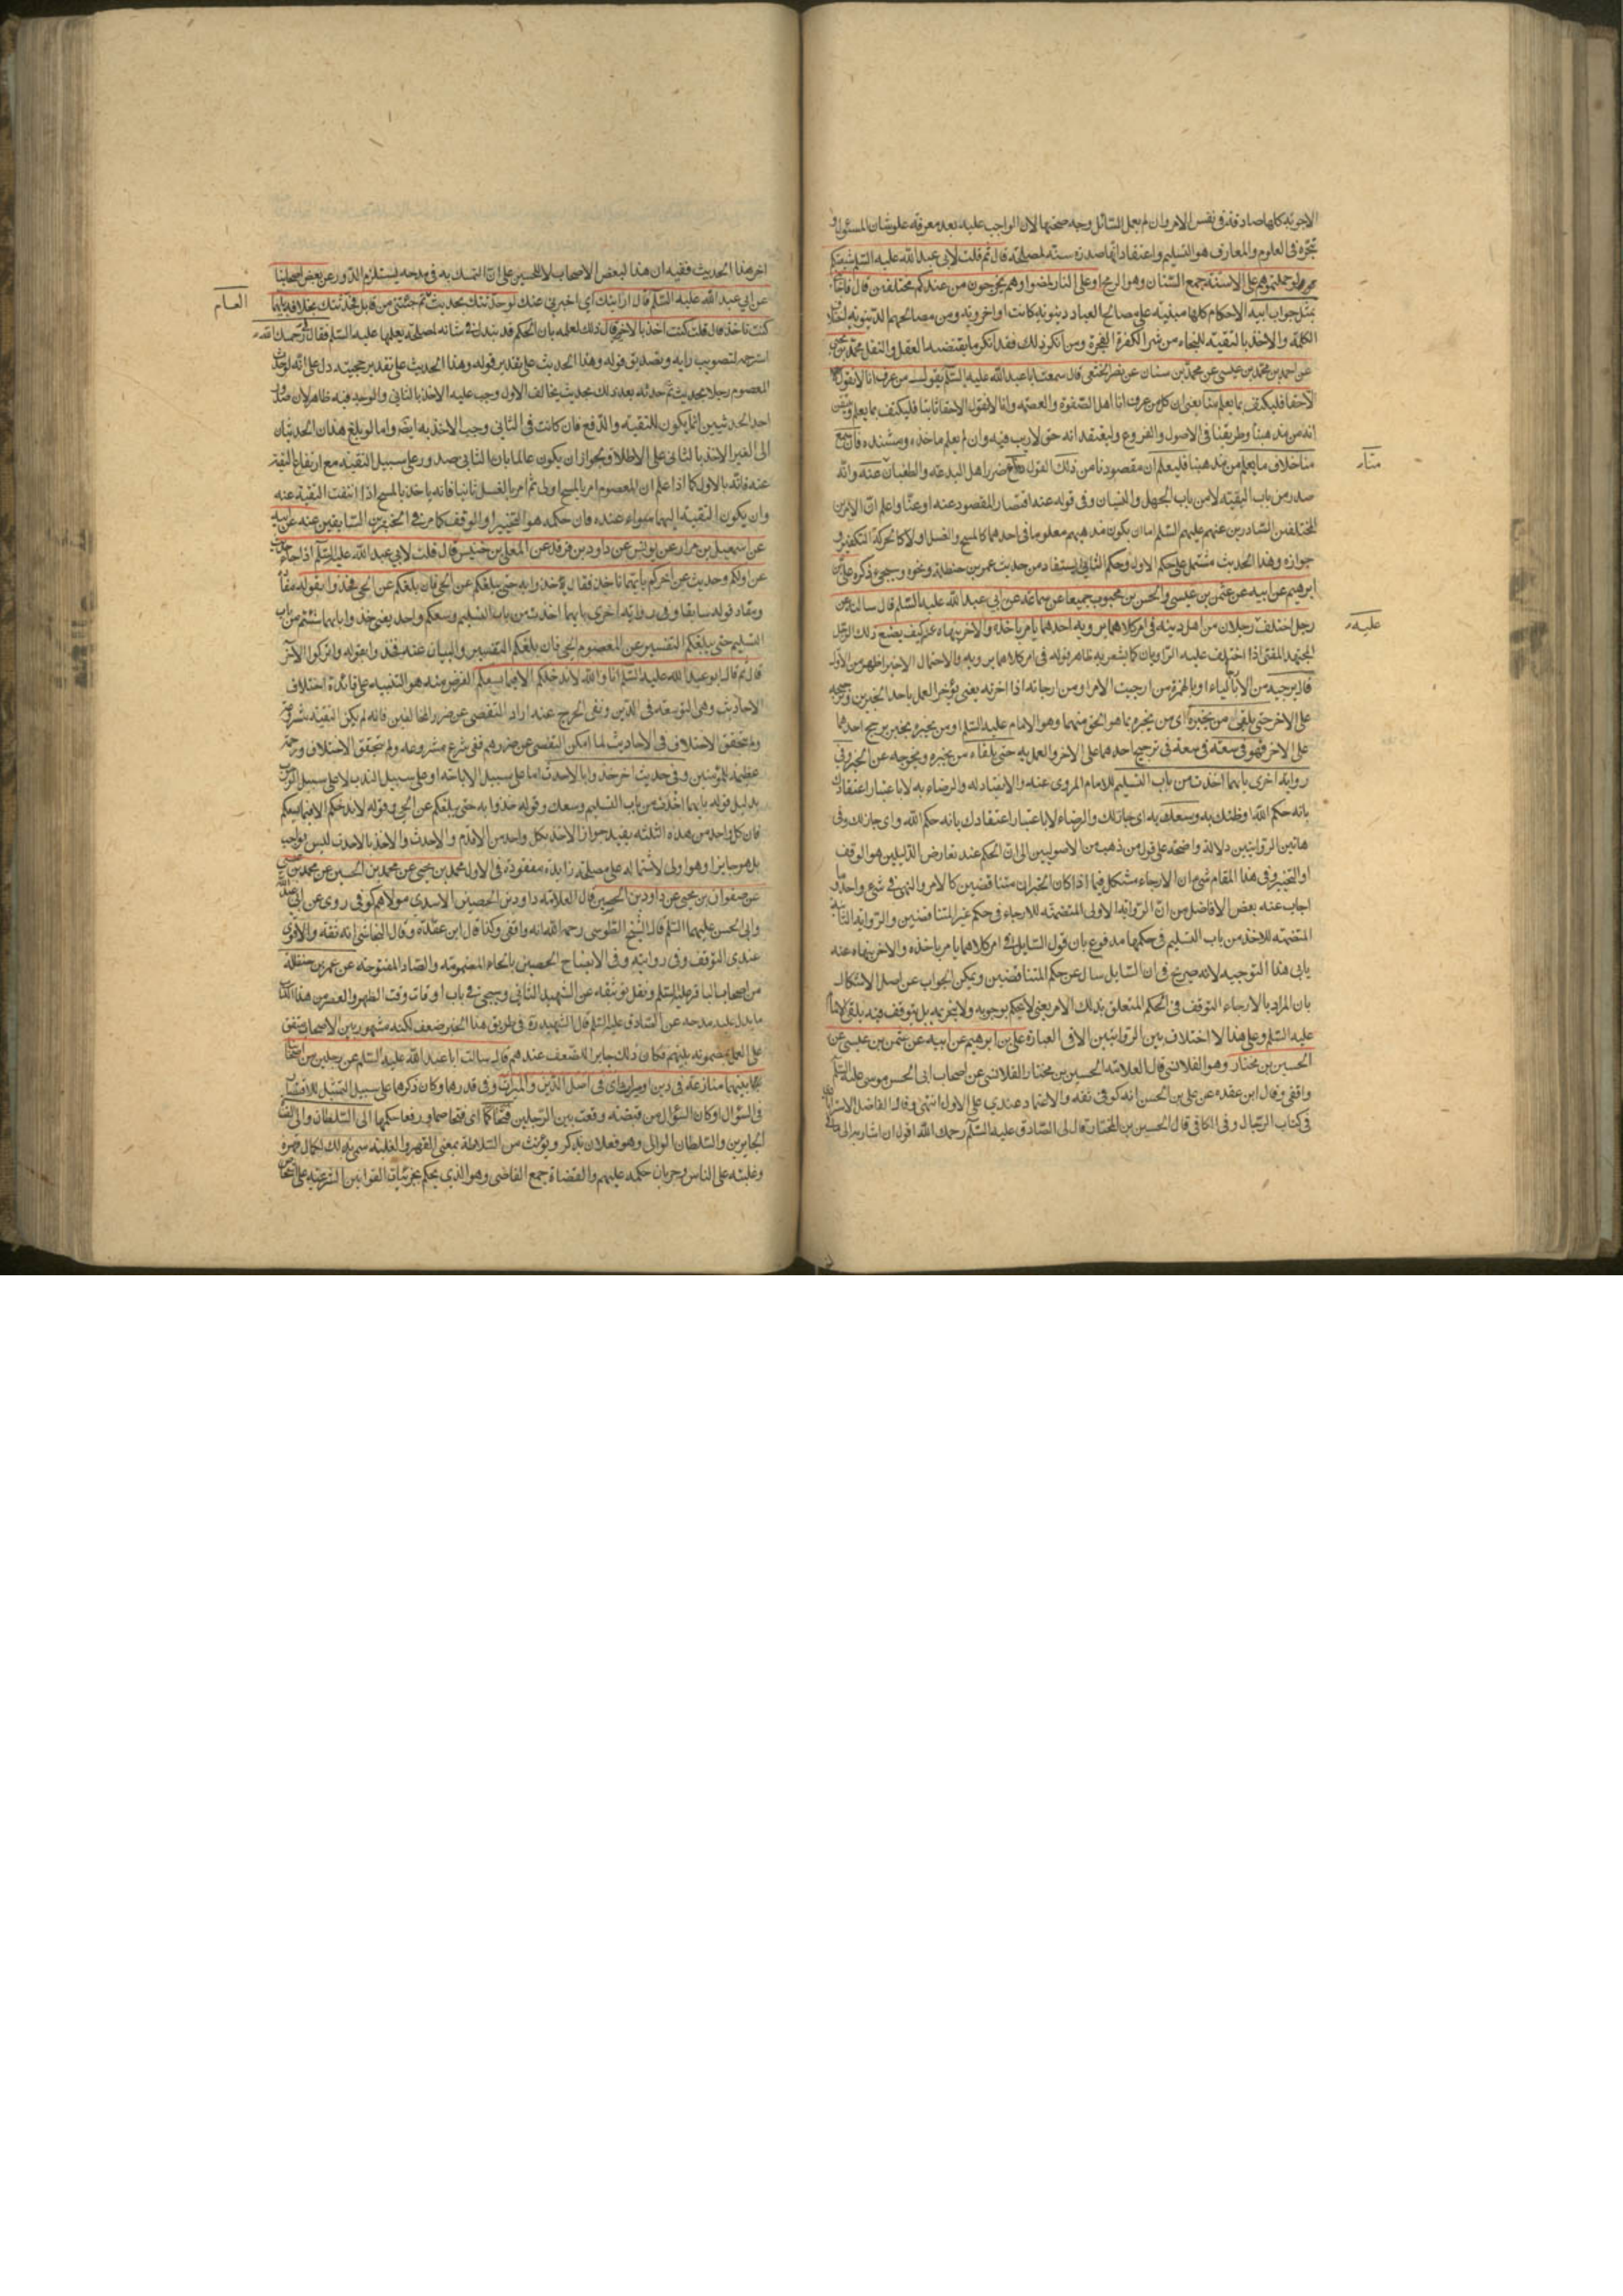 الاجوبة كلها صادقة في نفس الامر وان لم يعلم السائل وجه صحتها لان الواجب عليه بعد معرفة علو شان المسئول و
تبحره في العلوم والمعارف هو التسليم واعتقاد انها صدرت منه لمصلحة قال ثم قلت لابي عبد الله عليه السلم شيعتكم
لو حملتموهم على الاسنة جمع السنان وهو الرمح او على النار لمضوا وهم يخرجون من عندكم مختلفين قال فاجابني
بمثل جواب ابيه الاحكام كلها مبنية على مصالح العباد دينوية كانت او اخروية ومن مصالحهم الدينوية
الكلمة والاخذ بالتقية للنجاء من شر الكفرة الفجرة ومن انكر ذلك فقد انكر ما يقتضيه العقل والنقل محمد بن يحيى
عن احمد بن محمد بن عيسى عن محمد بن سنان عن نصر الخثعمي قال سمعت ابا عبد الله عليه السلم يقول من عرف انا لا نقول
الا حقا فليكتف بما يعلم منا يعني ان كل من عرف انا اهل الصفوة والعصمة وانا لا نقول الا حقا ثابتا فليكتف بما يعلم
انه من مذهبنا وطريقنا في الاصول والفروع وليعتقد انه حق لا ريب فيه وان لم يعلم ماخذه ومستنده فان سمع
منا خلاف ما يعلم من مذهبنا فليعلم ان مقصودنا من ذلك القول دفاع ضرر اهل البدعة والطغيان عنه وانه
منا
صدر من باب التقية لا من باب الجهل والنسيان وفي قوله عنه اختصار للمقصود عنه او عنا واعلم ان الامرين
المختلفين الصادرين عنهم عليهم السلم اما ان يكون مذهبهم معلوما في احدهما كالمسح والغسل او لا كالتحريك التكفير و
جوازه وهذا الحديث مشتمل على حكم الاول وحكم الثاني يستفاد من حديث عمر بن حنظلة ونحوه وسيجيء ذكره علي بن
ابرهيم عن ابيه عن عثمن بن عيسى والحسن بن محبوب جميعا عن سماعة عن ابي عبد الله عليه السلم قال سالته عن
رجل اختلف رجلان من اهل دينه في امر كلاهما يرويه احدهما يامر باخذه والاخر ينهاه عنه كيف يصنع ذلك الرجل
عليه
المجتهد المفتي اذا اختلف عليه الراويان كما يشعر به ظاهر قوله في امر كلاهما يرويه والاحتمال الاخير اظهر من الاول
قال يرجيه من الارجاء بالياء او بالهمزة من ارجيت الامر او من ارجاته اذا اخرته يعني يؤخر العمل باحد الخبرين وترجيحه
على الاخر حتى يلقى من يخبره اي من يخبره بما هو الحق منهما وهو الامام عليه السلم او من يخبره بخبر يرجح احدهما
على الاخر فهو في سعة في سعة في ترجيح احدهما على الاخر والعمل به حتى يلقاه من يخبره ويخرجه عن الحيرة وفي
رواية اخرى بايهما اخذت من باب التسليم للامام المروي عنه والانقياد له والرضاء به لا باعتبار اعتقادك
بانه حكم الله او ظنك به وسعك به اي جاز لك والرضاء لا باعتبار اعتقادك بانه حكم الله واي جاز لك وفي
هاتين الروايتين دلالة واضحة على قول من ذهب من الاصوليين الى ان الحكم عند تعارض الدليلين هو الوقف
او التخيير وفي هذا المقام شيء ان الارجاء مشكل فيما اذا كان الخبران متناقضين كالامر والنهي في شيء واحد وما
اجاب عنه بعض الافاضل من ان الرواية الاولى المتضمنة للارجاء في حكم غير المتناقضين والرواية الثانية
المتضمنة للاخذ من باب التسليم في حكمها مدفوع بان قول السايل في امر كلاهما يامر باخذه والاخر ينهاه عنه
يابى هذا التوجيه لانه صريح في ان السايل سال عن حكم المتناقضين ويمكن الجواب عن اصل الاشكال
بان المراد بالارجاء التوقف في الحكم المتعلق بذلك الامر يعني لا يحكم بوجوبه ولا بتحريمه بل يتوقف فيه يلقى الامام
عليه السلم وعلى هذا لا اختلاف بين الروايتين الا في العبارة علي بن ابرهيم عن ابيه عن عثمن بن عيسى عن
الحسين بن مختار وهو القلانسي قال العلامة الحسين بن مختار القلانسي من اصحاب ابي الحسن موسى عليه السلم
واقفي وقال ابن عقدة عن علي بن الحسن انه كوفي ثقة والاعتماد عندي على الاول انتهى وقال الفاضل الاسترابادي
في كتاب الرجال وفي الكافي قال الحسين بن المختار قال لي الصادق عليه السلم رحمك الله اقول ان اشار به الى ما في
اخر هذا الحديث ففيه ان هذا لبعض الاصحاب لا للحسين على ان التمسك به في مدحه يستلزم الدور عن بعض اصحابنا
عن ابي عبد الله عليه السلم قال ارايتك اي اخبرني عنك لو حدثتك بحديث ثم جئتني من قابل فحدثتك بخلافه بايهما
العام
كنت تاخذ قال قلت كنت اخذ بالاخير قال ذلك لعلمه بان الحكم قد يتبدل في شانه لمصلحة يعلمها عليه السلم فقال لي رحمك الله
استرحمه لتصويب رايه وتصديق قوله وهذا الحديث على تقدير قوله وهذا الحديث على تقدير حجيته دل على انه لو حدث
المعصوم رجلا بحديث ثم حدثه بعد ذلك بحديث يخالف الاول وجب عليه الاخذ بالثاني والوجه فيه ظاهر لان صدور
احد الحديثين انما يكون للتقية والدفع فان كانت في الثاني وجب الاخذ به ايضا واما لو بلغ هذان الحديثان
الى الغير الاخذ بالثاني على الاطلاق لجواز ان يكون عالما بان الثاني صدر على سبيل التقية مع ارتفاع التقية
عنه فانه بالاول كما اذا علم ان المعصوم امر بالمسح اولى ثم امر بالغسل ثانيا فانه ياخذ بالمسح اذا انتفت التقية عنه
وان يكون التقية اليهما سواء عنده فان حكمه هو التخيير او الوقف كما مر في الخبرين السابقين عنه عن ابيه
عن اسمعيل بن مرار عن يونس عن داود بن فرقد عن المعلى بن خنيس قال قلت لابي عبد الله عليه السلم اذا جاء حديث
عن اولكم وحديث عن اخركم بايهما ناخذ فقال خذوا به حتى يبلغكم عن الحي فان بلغكم عن الحي فخذوا بقوله
ومفاد قوله سابقا وفي رواية اخرى بايهما اخذت من باب التسليم وسعكم واحد يعني خذوا بايهما شئتم من باب
التسليم حتى يبلغكم التفسير عن المعصوم الحي فان بلغكم التفسير والبيان عنه فخذوا بقوله واتركوا الاخر
قال ثم قال ابو عبد الله عليه السلم انا والله لا ندخلكم الا فيما يسعكم الغرض منه هو التنبيه على فائدة اختلاف
الاحاديث وهي التوسعة في الدين ونفي الحرج عنه اراد التفصي عن ضرر المخالفين فانه لم يكن التقية مشروعة
ولم يتحقق الاختلاف في الاحاديث لما امكن التفصي عن ضررهم ففي شرع مشروعه ولم يتحقق الاختلاف ورحمة
عظيمة للمؤمنين وفي حديث اخر خذوا بالاحدث اما على سبيل الاباحة او على سبيل الندب لا على سبيل الوجوب
بدليل قوله بايهما اخذت من باب التسليم وسعك وقوله خذوا به حتى يبلغكم عن الحي وقوله لا ندخلكم الا فيما يسعكم
فان كل واحد من هذه الثلثة يفيد جواز الاخذ بكل واحد من الاقدم والاحدث والاخذ بالاحدث ليس بواجب
بل هو جايز او هو اولى لاشتماله على مصلحة زايدة مفقودة في الاول محمد بن يحيى عن محمد بن الحسين عن محمد بن عيسى
عن صفوان بن يحيى عن داود بن الحصين قال العلامة داود بن الحصين الاسدي مولاهم كوفي روى عن ابي عبد الله
وابي الحسن عليهما السلم قال الشيخ الطوسي رحمه الله انه واقفي وكذا قال ابن عقدة وقال النجاشي انه ثقة والاقوى
عندي التوقف في روايته وفي الايضاح الحصين بالحاء المضمومة والصاد المفتوحة عن عمر بن حنظلة
من اصحاب الباقر عليه السلم ونقل توثيقه عن الشهيد الثاني وسيجيء في باب اوقات وقت الظهر والعصر من هذا الكتاب
ما يدل على مدحه عن الصادق عليه السلم قال الشهيد ره في طريق هذا الخبر ضعف لكنه مشهور بين الاصحاب متفق
على العمل بمضمونه بينهم فكان ذلك جابرا للضعف عندهم قال سالت ابا عبد الله عليه السلم عن رجلين من اصحابنا
بينهما منازعة في دين او ميراث اي في اصل الدين والميراث او في قدرهما وكان ذكرهما على سبيل التمثيل للاختصار
في السؤال او كان السؤال من قبضته وقعت بين الرجلين فتحاكما اي فتخاصما ورفعا حكمهما الى السلطان والى القضاة
الجايرين والسلطان الوالي وهو فعلان يذكر ويؤنث من السلاطة بمعنى القهر والغلبة سمي به لك لكمال قهره
وغلبته على الناس وجريان حكمه عليهم والقضاة جمع القاضي وهو الذي يحكم بجزئيات القوانين الشرعية على